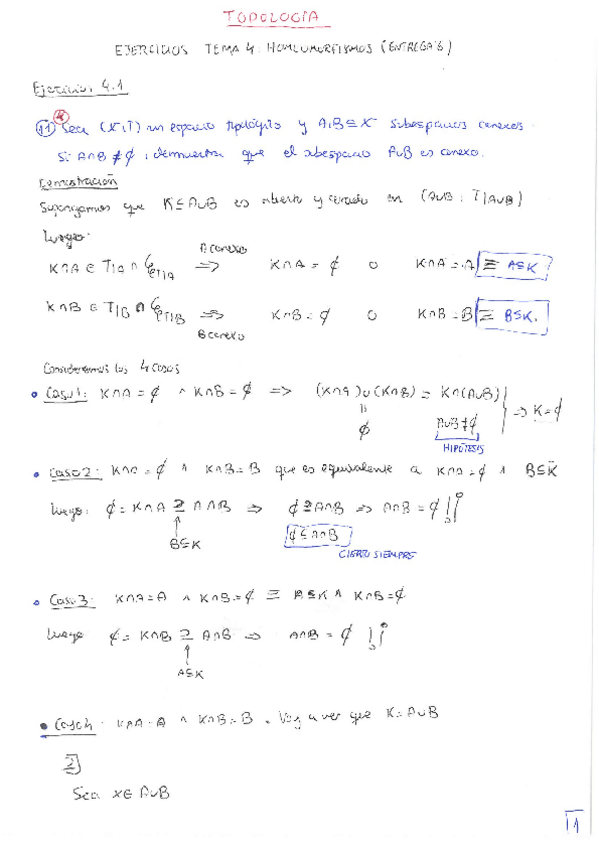 TOPOLOGÍA
EJERCICIOS TEMA 4: HOMEOMORFISMOS (ENTREGA 6)
Ejercicio 4.1
4
11 Sea (X,T) un espacio topológico y A,B⊆X subespacios conexos.
Si A∩B ≠ ∅, demuestra que el subespacio A∪B es conexo.
Demostración
Supongamos que K⊆A∪B es abierto y cerrado en (A∪B, T|A∪B)
Luego:
A conexo
K∩A ∈ T|A ∩ C_{T|A} ⇒ K∩A = ∅ o K∩A = A ≡ A⊆K
K∩B ∈ T|B ∩ C_{T|B} ⇒ K∩B = ∅ o K∩B = B ≡ B⊆K.
B conexo
Consideramos los 4 casos
• Caso 1: K∩A = ∅ ∧ K∩B = ∅ ⇒ (K∩A)∪(K∩B) = K∩(A∪B) ⇒ K=∅
∅ A∪B≠∅
HIPÓTESIS
• Caso 2: K∩A = ∅ ∧ K∩B = B que es equivalente a K∩A = ∅ ∧ B⊆K
Luego: ∅ = K∩A ⊇ A∩B ⇒ ∅⊇A∩B ⇒ A∩B = ∅ !¡
B⊆K ∅⊆A∩B
CIERTO SIEMPRE
• Caso 3: K∩A = A ∧ K∩B = ∅ ≡ A⊆K ∧ K∩B = ∅
Luego ∅ = K∩B ⊇ A∩B ⇒ A∩B = ∅ !¡
A⊆K
• Caso 4: K∩A = A ∧ K∩B = B. Voy a ver que K = A∪B
⊇
Sea x∈ A∪B
1